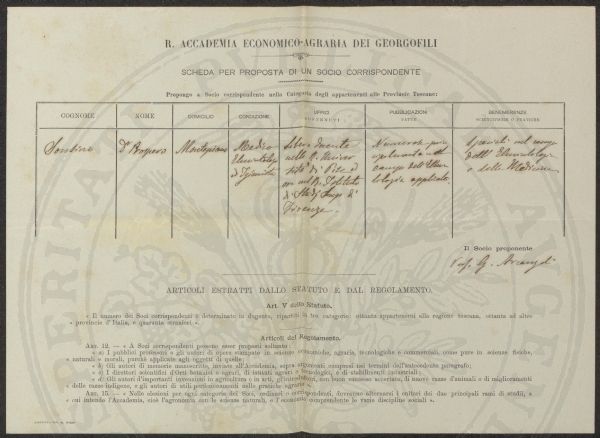 R. ACCADEMIA ECONOMICO-AGRARIA DEI GEORGOFILI
SCHEDA PER PROPOSTA DI UN SOCIO CORRISPONDENTE
Propongo a Socio corrispondente nella Categoria degli appartenenti alle Provincie Toscane:
COGNOME NOME DOMICILIO CONDIZIONE UFFICI PUBBLICAZIONI BENEMERENZE
SOSTENUTI FATTE SCIENTIFICHE O PRATICHE
Sonsino Dr Prospero Medico
Elmintologo
Libero docente
nella R. Univer
sità di Pisa
nel R. Istituto
di Studj Sup. di
Firenze
Numerose
campo dell'Elmin
tologia applicata
speciali nel campo
dell'Elmintologia
e della Medicina
Il Socio proponente
Prof. G. Arcangeli
ARTICOLI ESTRATTI DALLO STATUTO E DAL REGOLAMENTO.
Art. V dello Statuto.
« Il numero dei Soci corrispondenti è determinato in dugento, ripartiti in tre categorie: ottanta appartenenti alla regione toscana, ottanta ad altre
« provincie d'Italia, e quaranta stranieri ».
Articoli del Regolamento.
ART. 12. — « A Soci corrispondenti possono esser proposti soltanto:
« a) I pubblici professori e gli autori di opere stampate in scienze economiche, agrarie, tecnologiche e commerciali, come pure in scienze fisiche,
« naturali e morali, purchè applicate agli oggetti di quelle;
« b) Gli autori di memorie manoscritte, inviate all'Accademia, sopra argomenti compresi nei termini dell'antecedente paragrafo;
« c) I direttori scientifici d'Orti botanici e agrari, di istituti agrari e tecnologici, e di stabilimenti zootecnici;
« d) Gli autori d'importanti invenzioni in agricoltura o in arti, gl'introduttori, con buon successo accertato, di nuove razze d'animali e di miglioramento
« delle razze indigene, e gli autori di utili perfezionamenti nelle pratiche agrarie ».
ART. 15. — « Nelle elezioni per ogni categoria dei Soci, ordinari e corrispondenti, dovranno alternarsi i cultori dei due principali rami di studii, a
« cui intende l'Accademia, cioè l'agronomia con le scienze naturali, e l'economia comprendente le varie discipline sociali ».